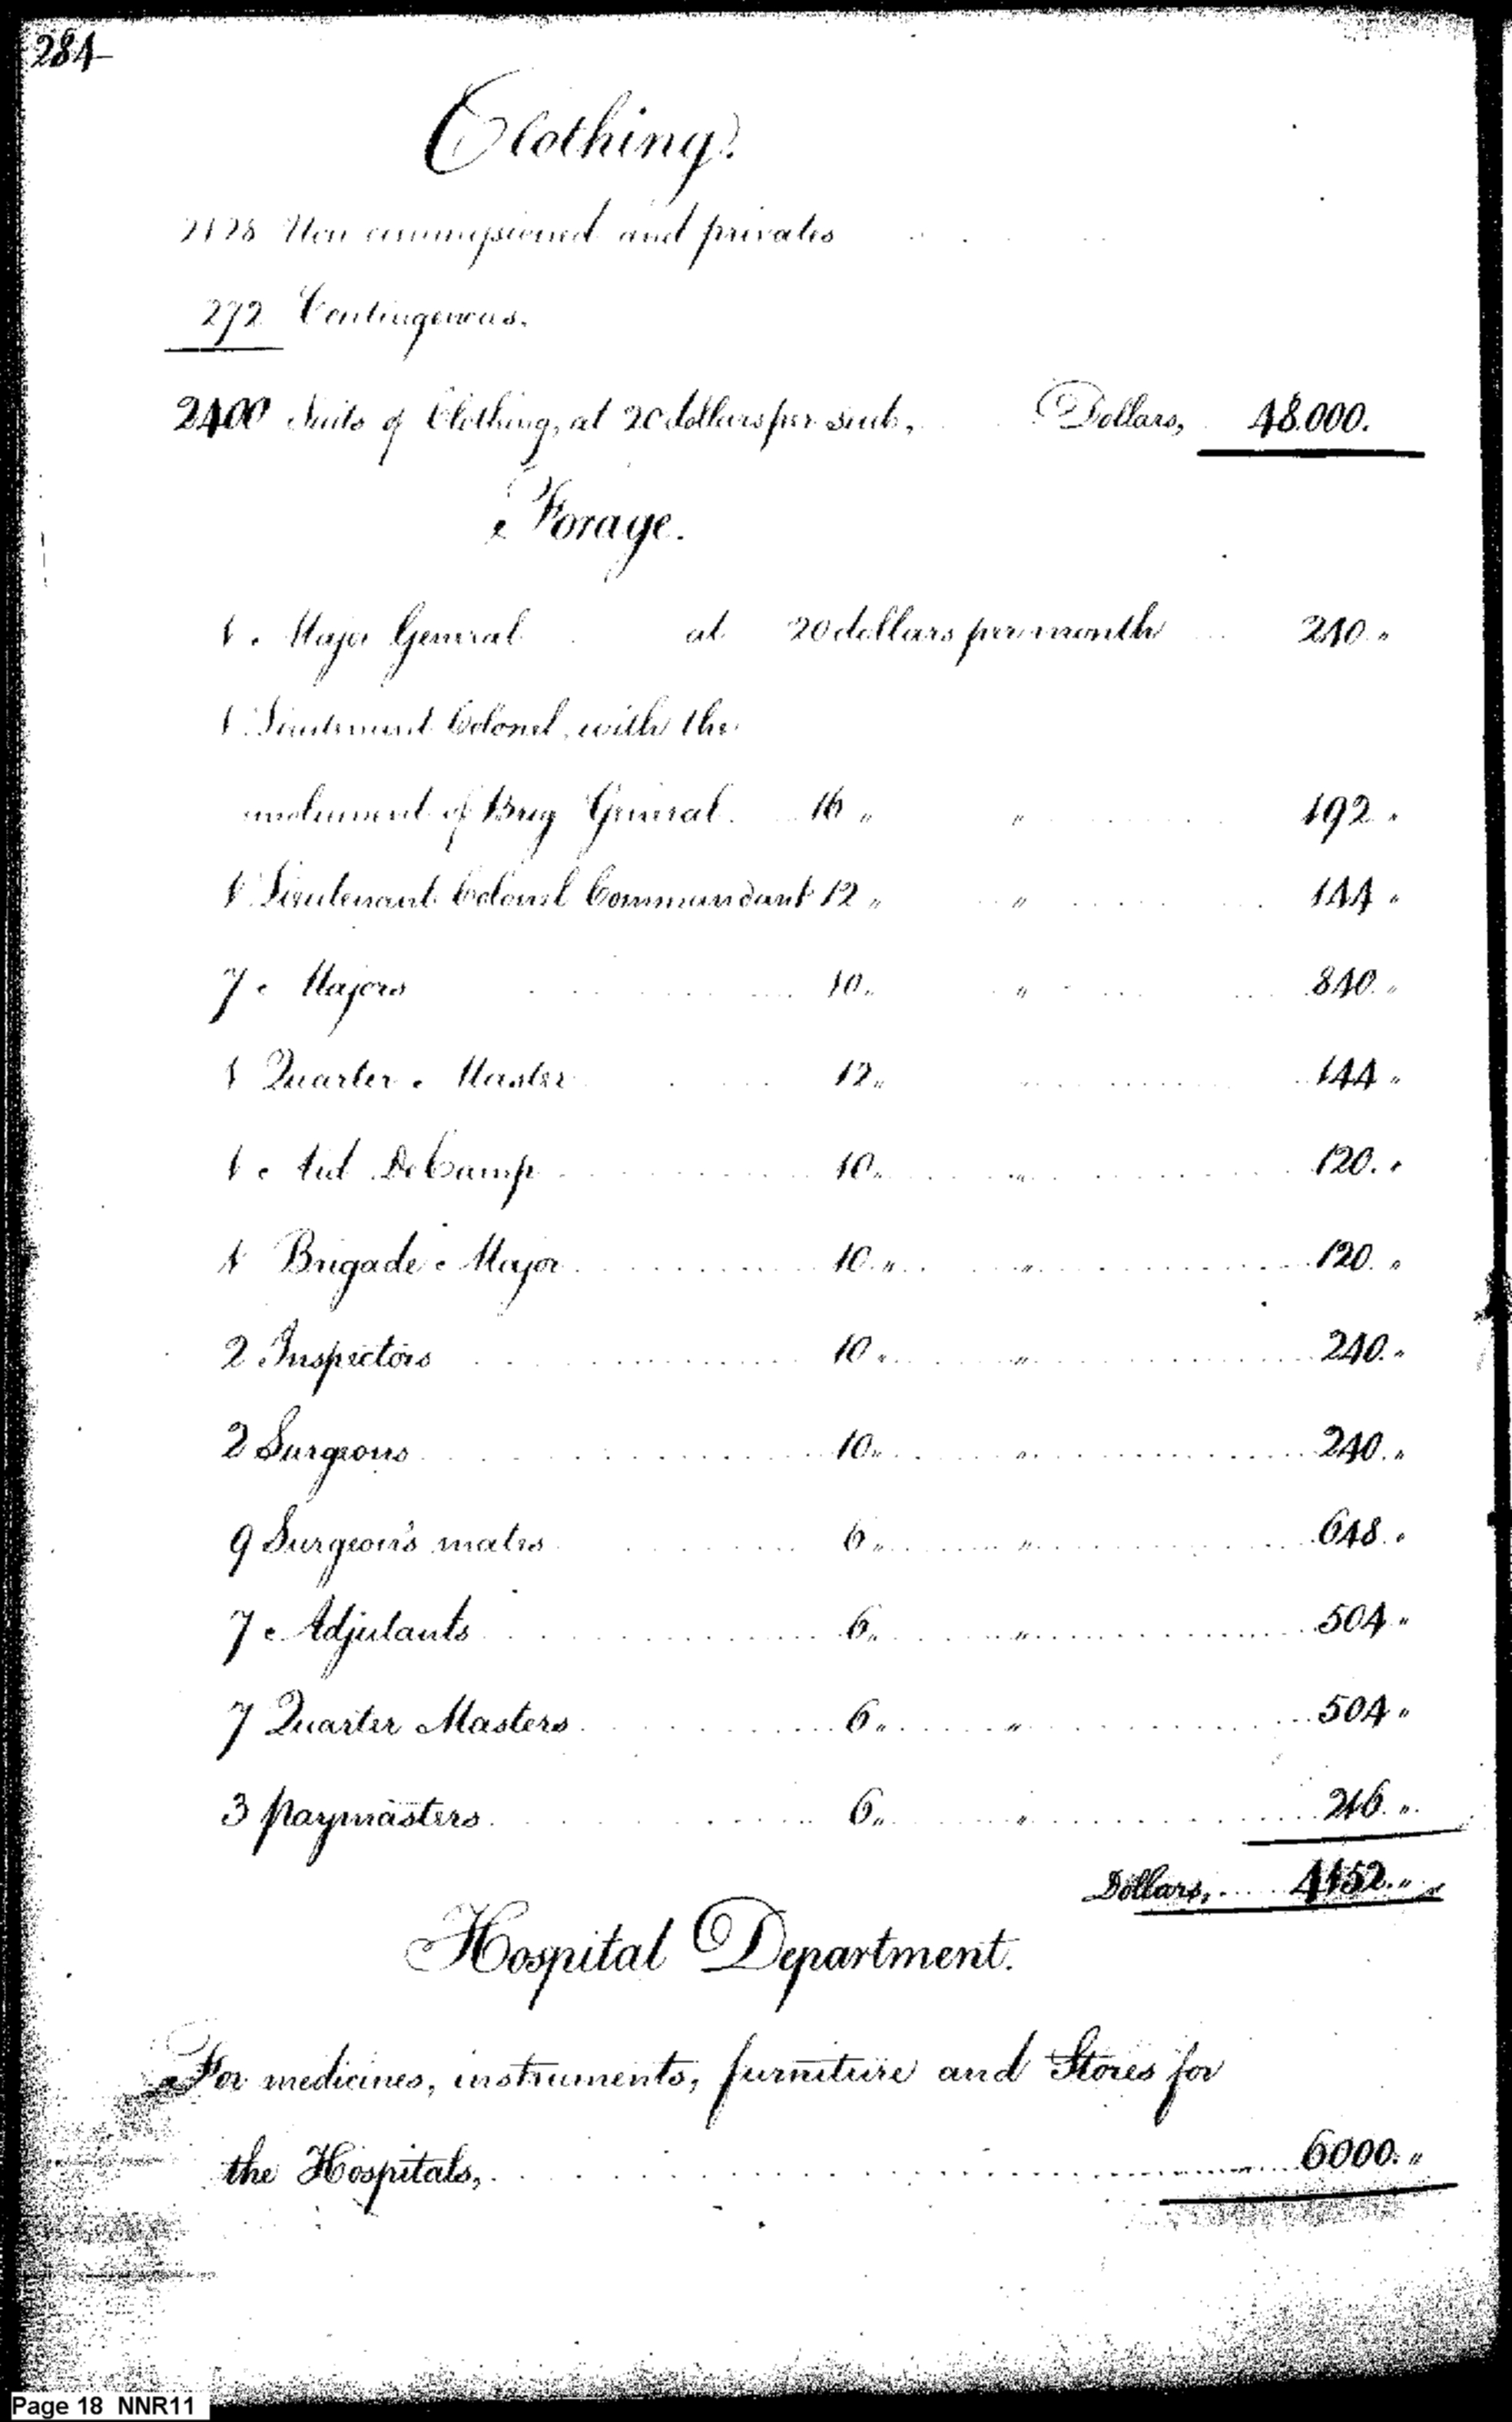 284
Clothing.
2128 Non commissioned and privates
272 Contingencies.
2400 Suits of Clothing, at 20 dollars per suit, Dollars, 48.000.
Forage.
1 Major General at 20 dollars per month 240 "
1 Lieutenant Colonel, with the
emolument of Brig General. 16 " " 192 "
1 Lieutenant Colonel Commandant 12 " " 144 "
7 Majors 10 " " 840 "
1 Quarter Master 12 " " 144 "
1 Aid DeCamp 10 " " 120 "
1 Brigade Major 10 " " 120 "
2 Inspectors 10 " " 240 "
2 Surgeons 10 " " 240 "
9 Surgeon's mates 6 " " 648 "
7 Adjutants 6 " " 504 "
7 Quarter Masters 6 " " 504 "
3 paymasters 6 " " 216 "
Dollars, 4152 "
Hospital Department.
For medicines, instruments, furniture and Stores for
the Hospitals, 6000 "
Page 18 NNR11